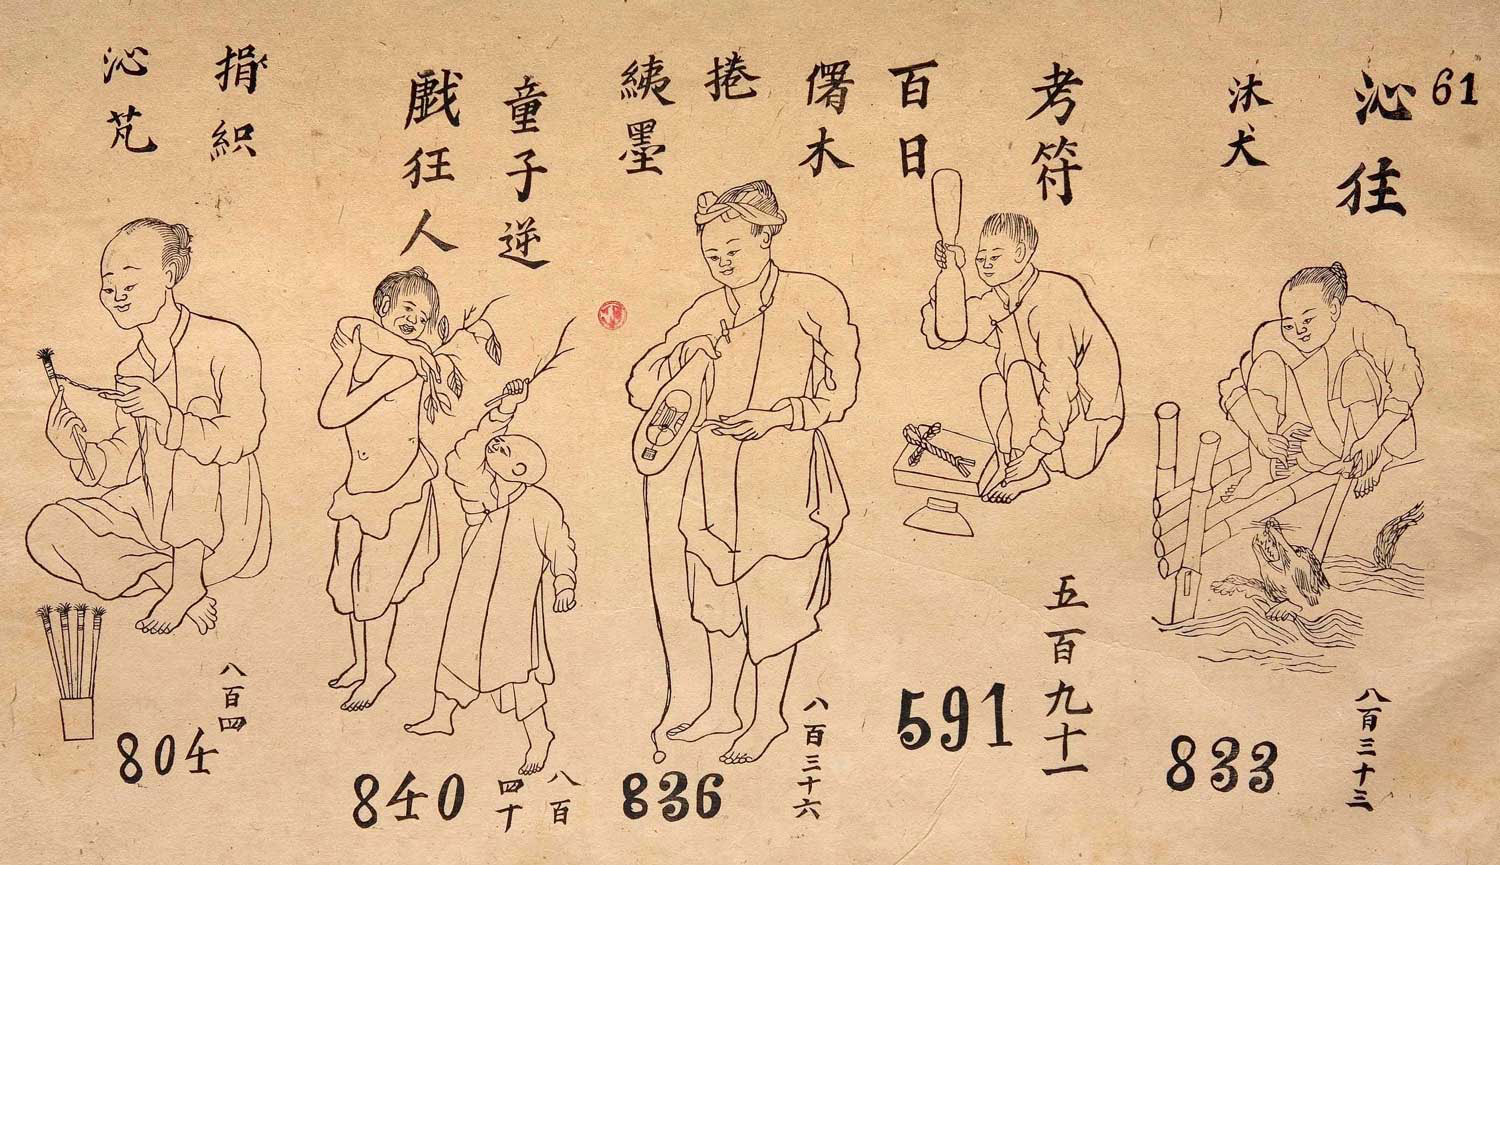 61
沁徃
沐犬
833
八百三十三
考符
百日
591
五百九十一
木
捲
墨
836
八百三十六
童子逆
戲狂人
840
八百
四十
捐織
沁芃
804
八百四